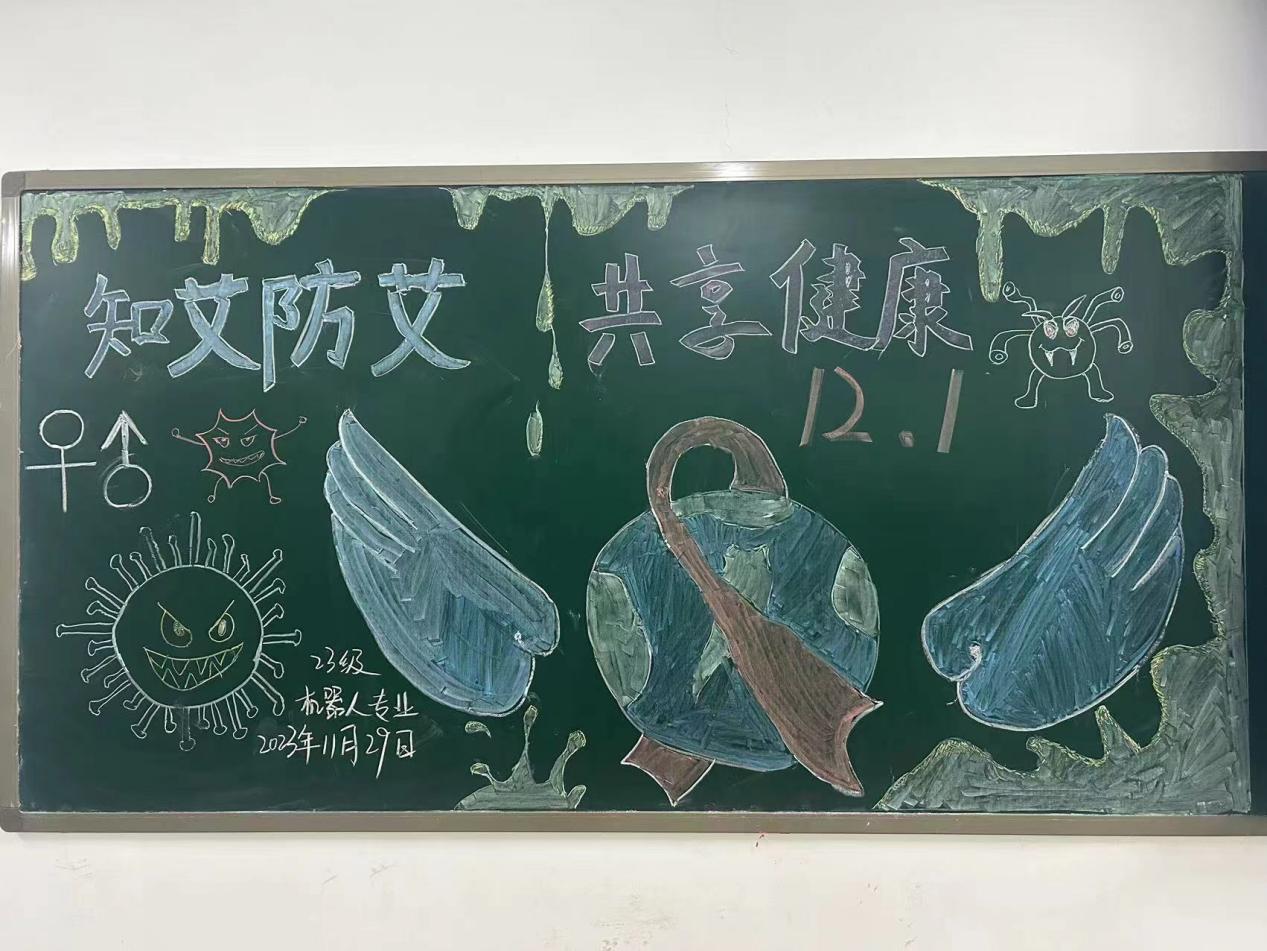 知艾防艾 共享健康
12.1
23级
机器人专业
2023年11月29日